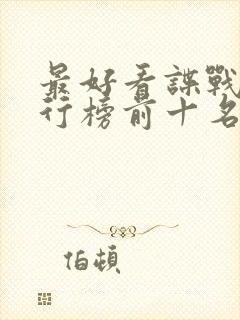 最好看諜戰
行榜前十名
伯頓